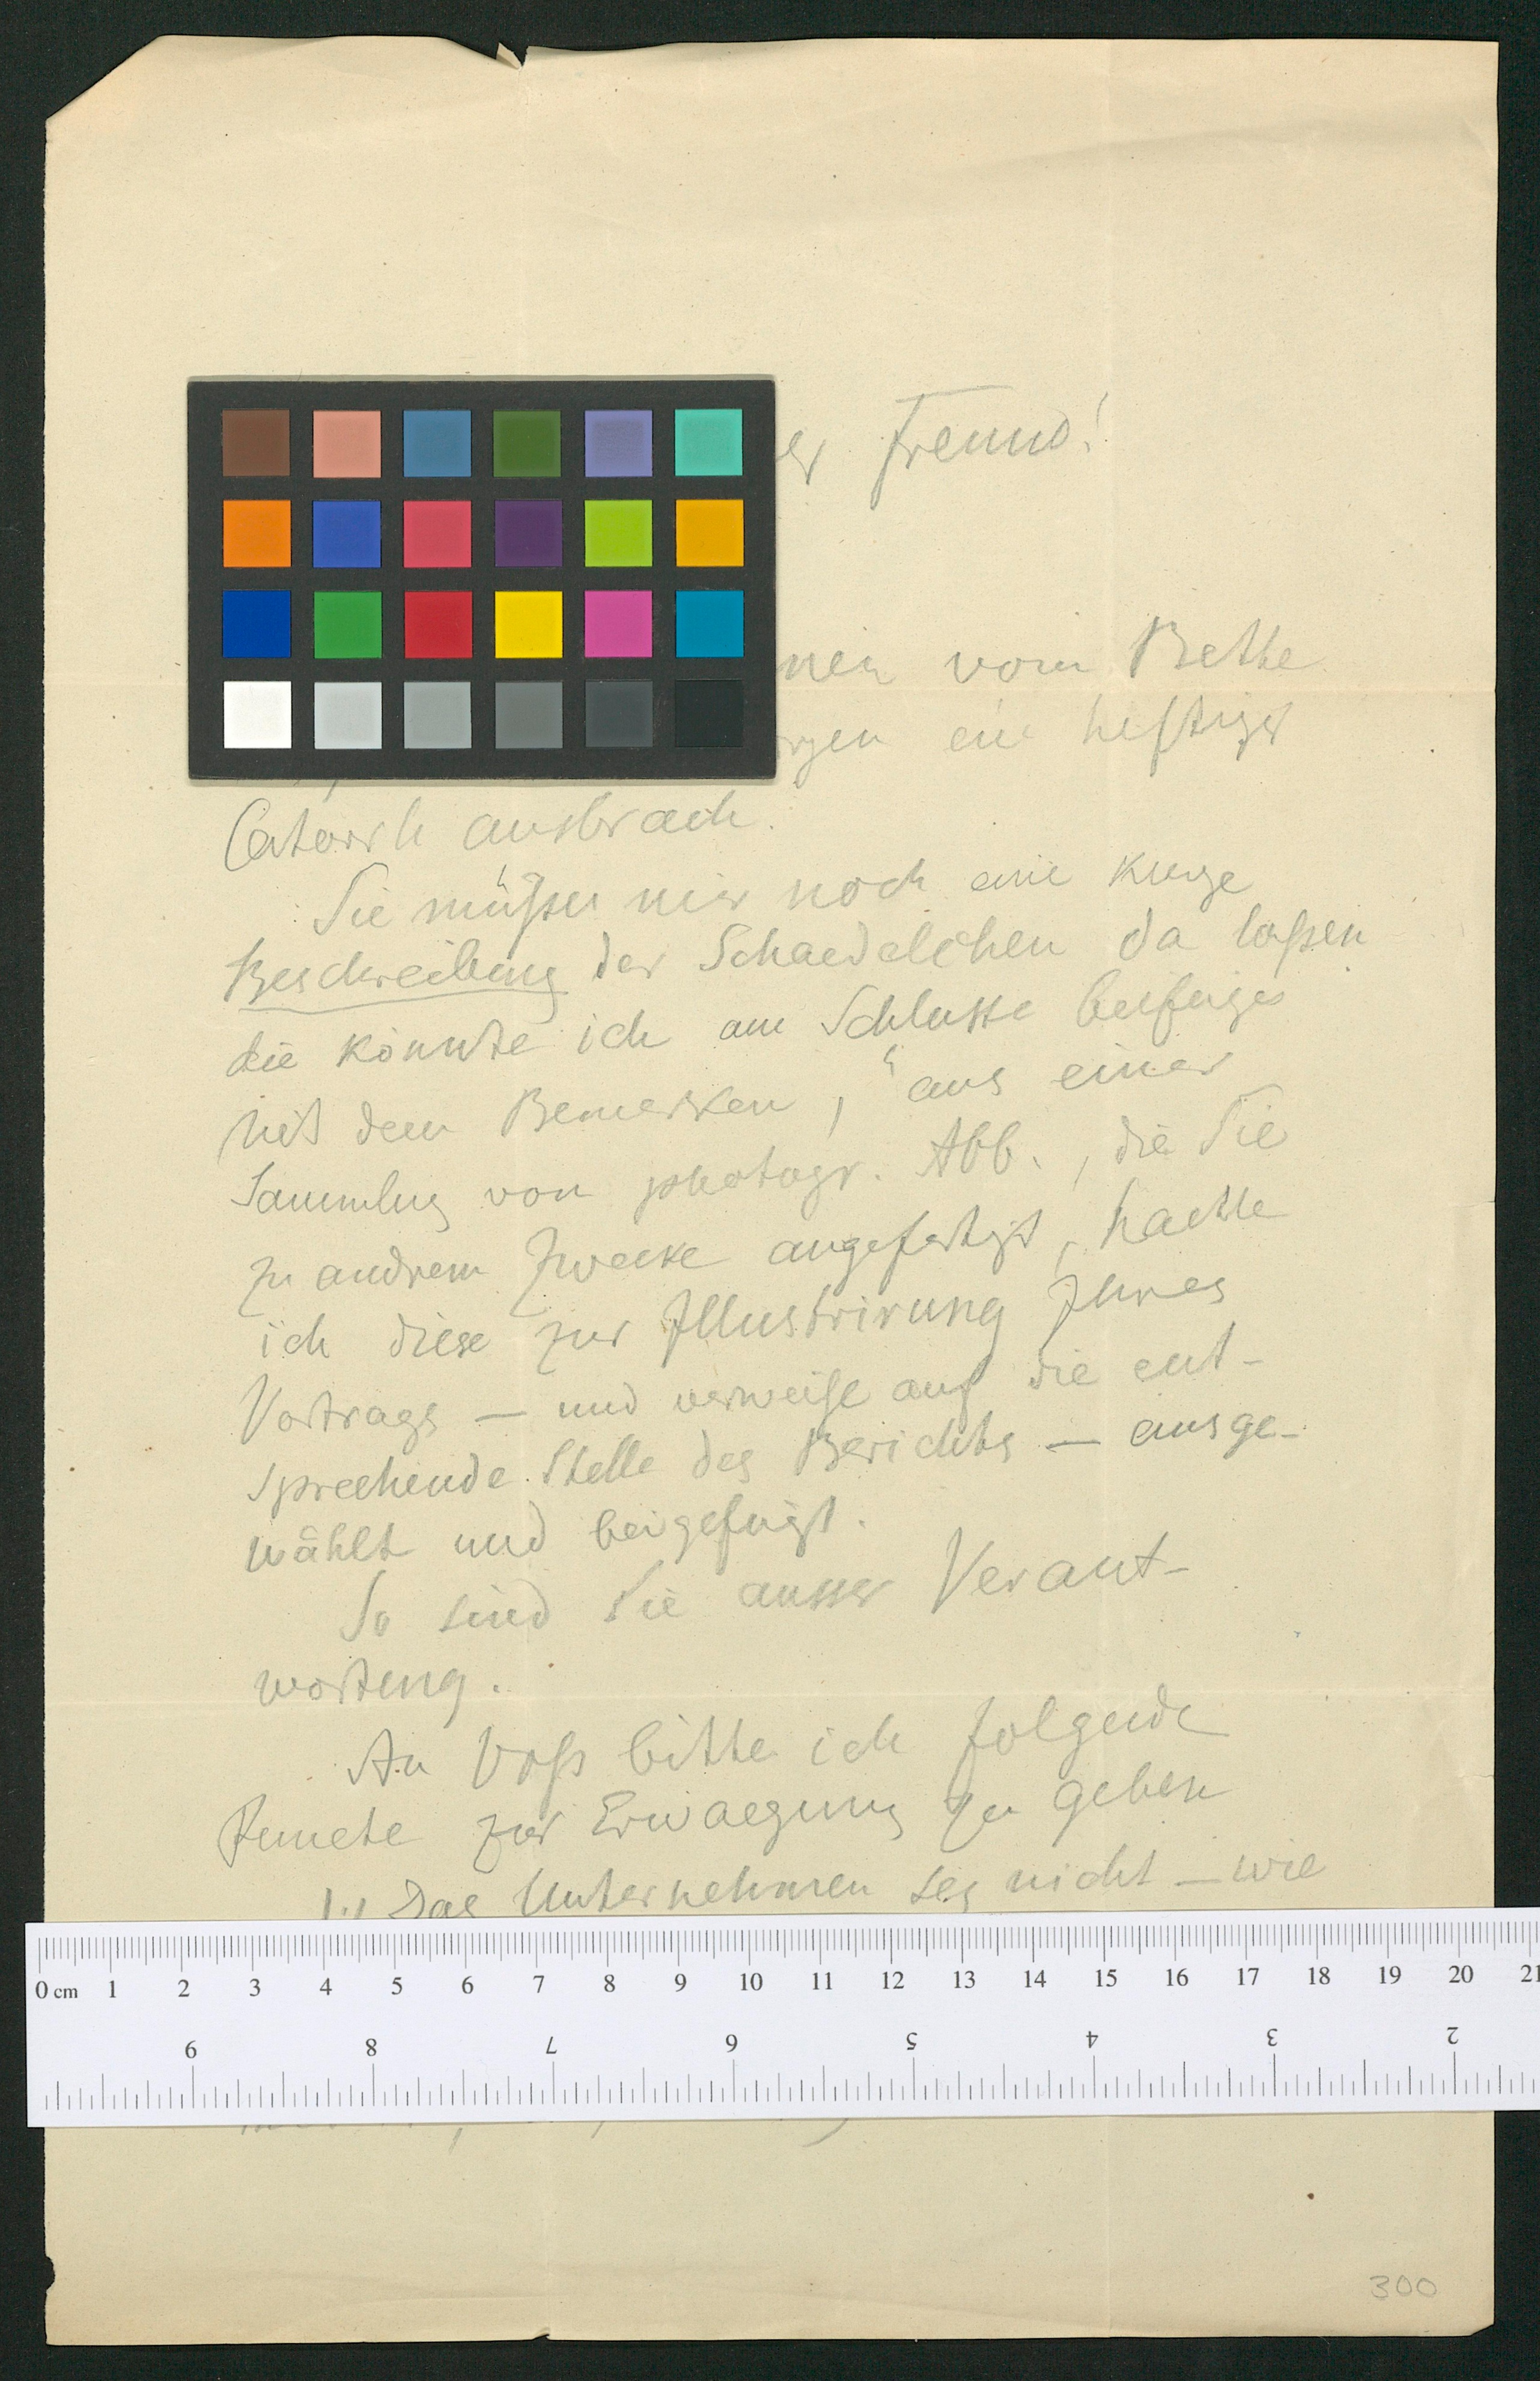 er Freund!
nen vom Bette
rgen ein heftiger
Catarrh ausbrach.
Sie müßen mir noch eine kurze
Beschreibung der Schaedelchen da laßen
die könnte ich am Schlusse beifügen
mit dem Bemerken, "aus einer
Sammlug von photogr. Abb., die Sie
zu andrem Zwecke angefertigt, haette
ich diese zur Illustrirung Ihres
Vortrags — und verweise auf die ent-
sprechende Stelle des Berichts — ausge-
wählt und beigefügt.
So sind Sie ausser Verant-
wortung.
An Voß bitte ich folgende
Puncte zur Erwaegung zu geben
1.) Das Unternehmen sey nicht — wie
0 cm 1 2 3 4 5 6 7 8 9 10 11 12 13 14 15 16 17 18 19 20 21
9 8 7 6 5 4 3 2
300